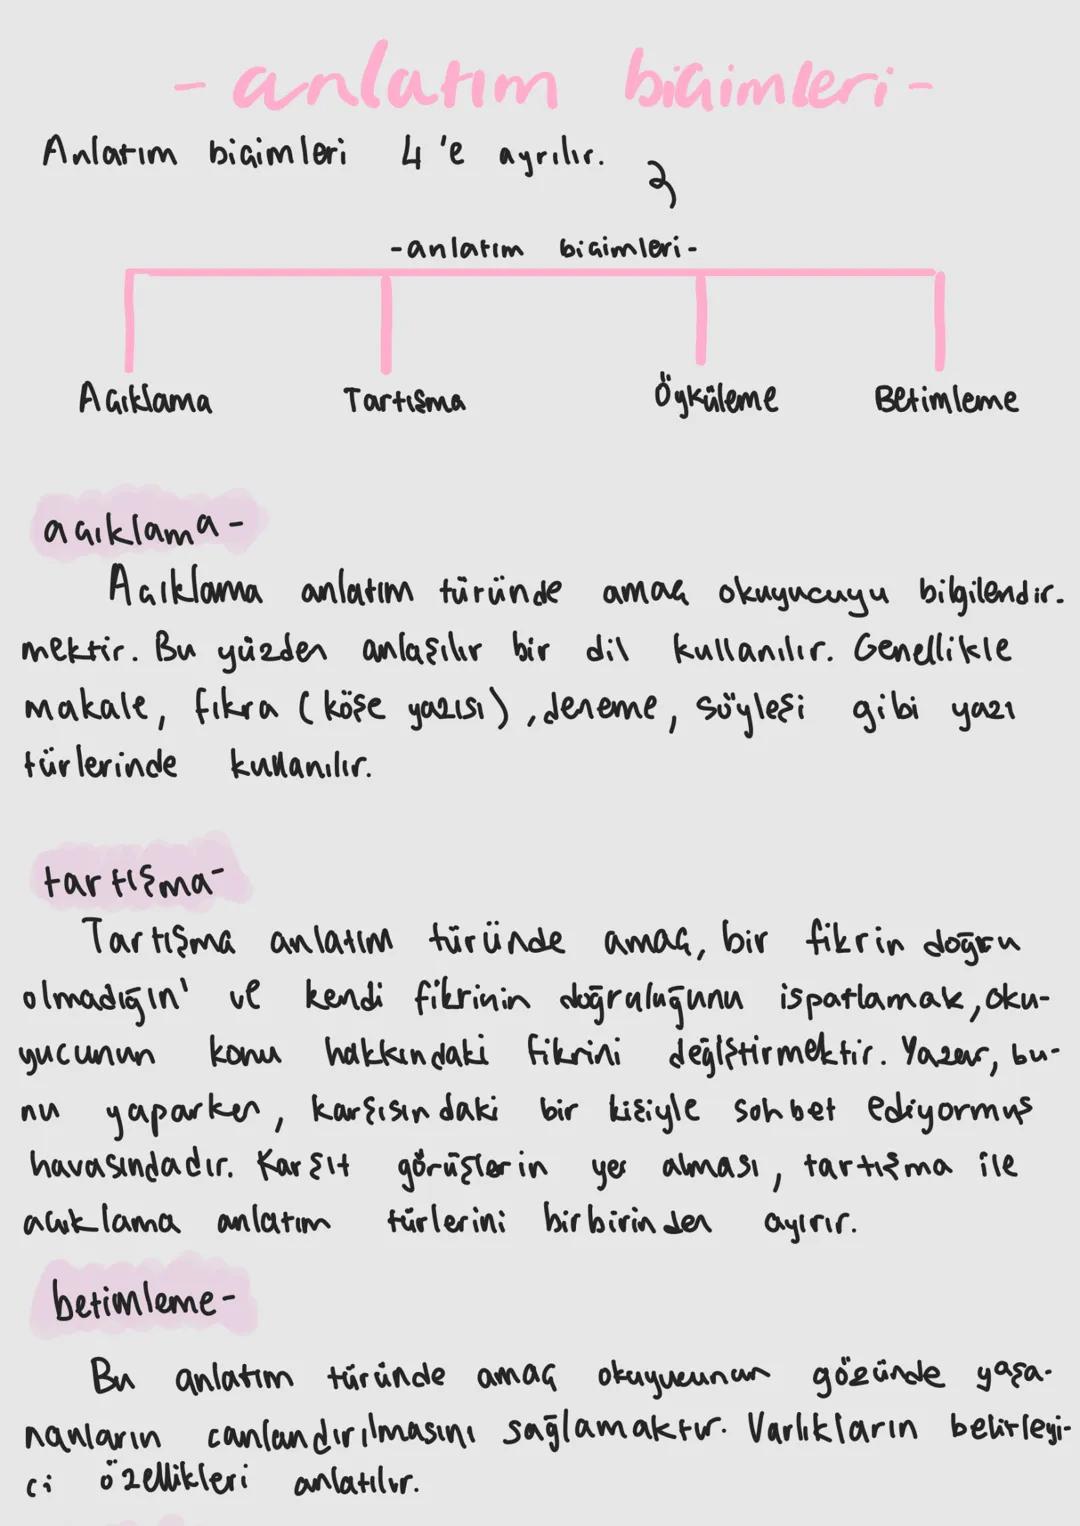 - anlatım biçimleri -
Anlatım biçimleri 4'e ayrılır.
- anlatım biçimleri -
Açıklama Tartışma Öyküleme Betimleme
açıklama -
Açıklama anlatım türünde amaç okuyucuyu bilgilendir.
mektir. Bu yüzden anlaşılır bir dil kullanılır. Genellikle
makale, fıkra (köşe yazısı), deneme, söyleşi gibi yazı
türlerinde kullanılır.
tartışma -
Tartışma anlatım türünde amaç, bir fikrin doğru
olmadığın' ve kendi fikrinin doğruluğunu ispatlamak, oku-
yucunun konu hakkındaki fikrini değiştirmektir. Yazar, bu-
nu yaparken, karşısındaki bir kişiyle sohbet ediyormuş
havasındadır. Karşıt görüşlerin yer alması, tartışma ile
açıklama anlatım türlerini birbirinden ayırır.
betimleme -
Bu anlatım türünde amaç okuyucunun gözünde yaşa-
nanların canlandırılmasını sağlamaktır. Varlıkların belirleyi-
ci özellikleri anlatılır.